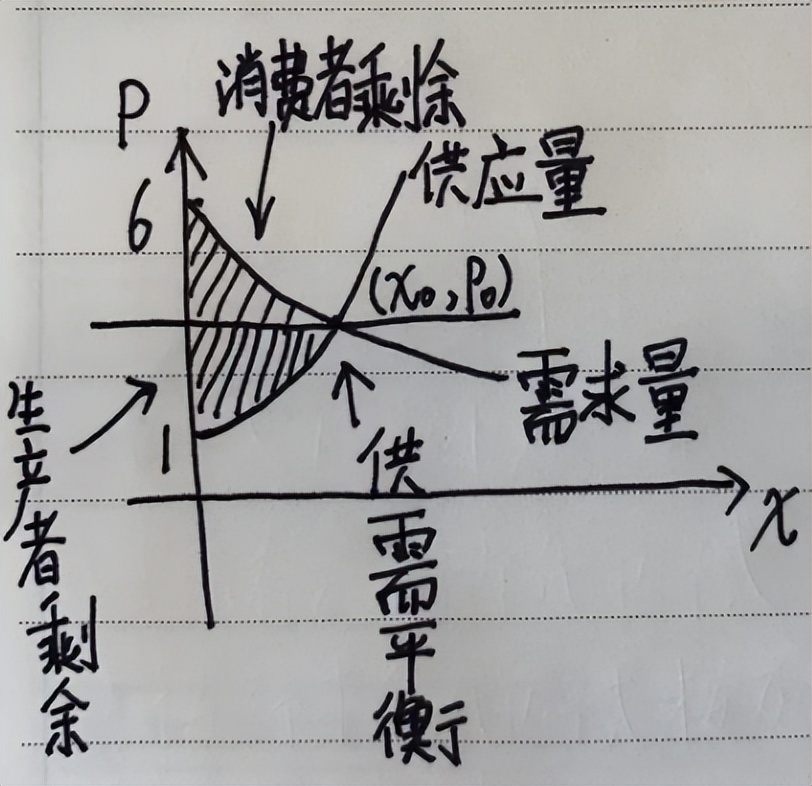 消费者剩余
P
供应量
6
(x₀,P₀)
需求量
生产者剩余
1
供需平衡
x